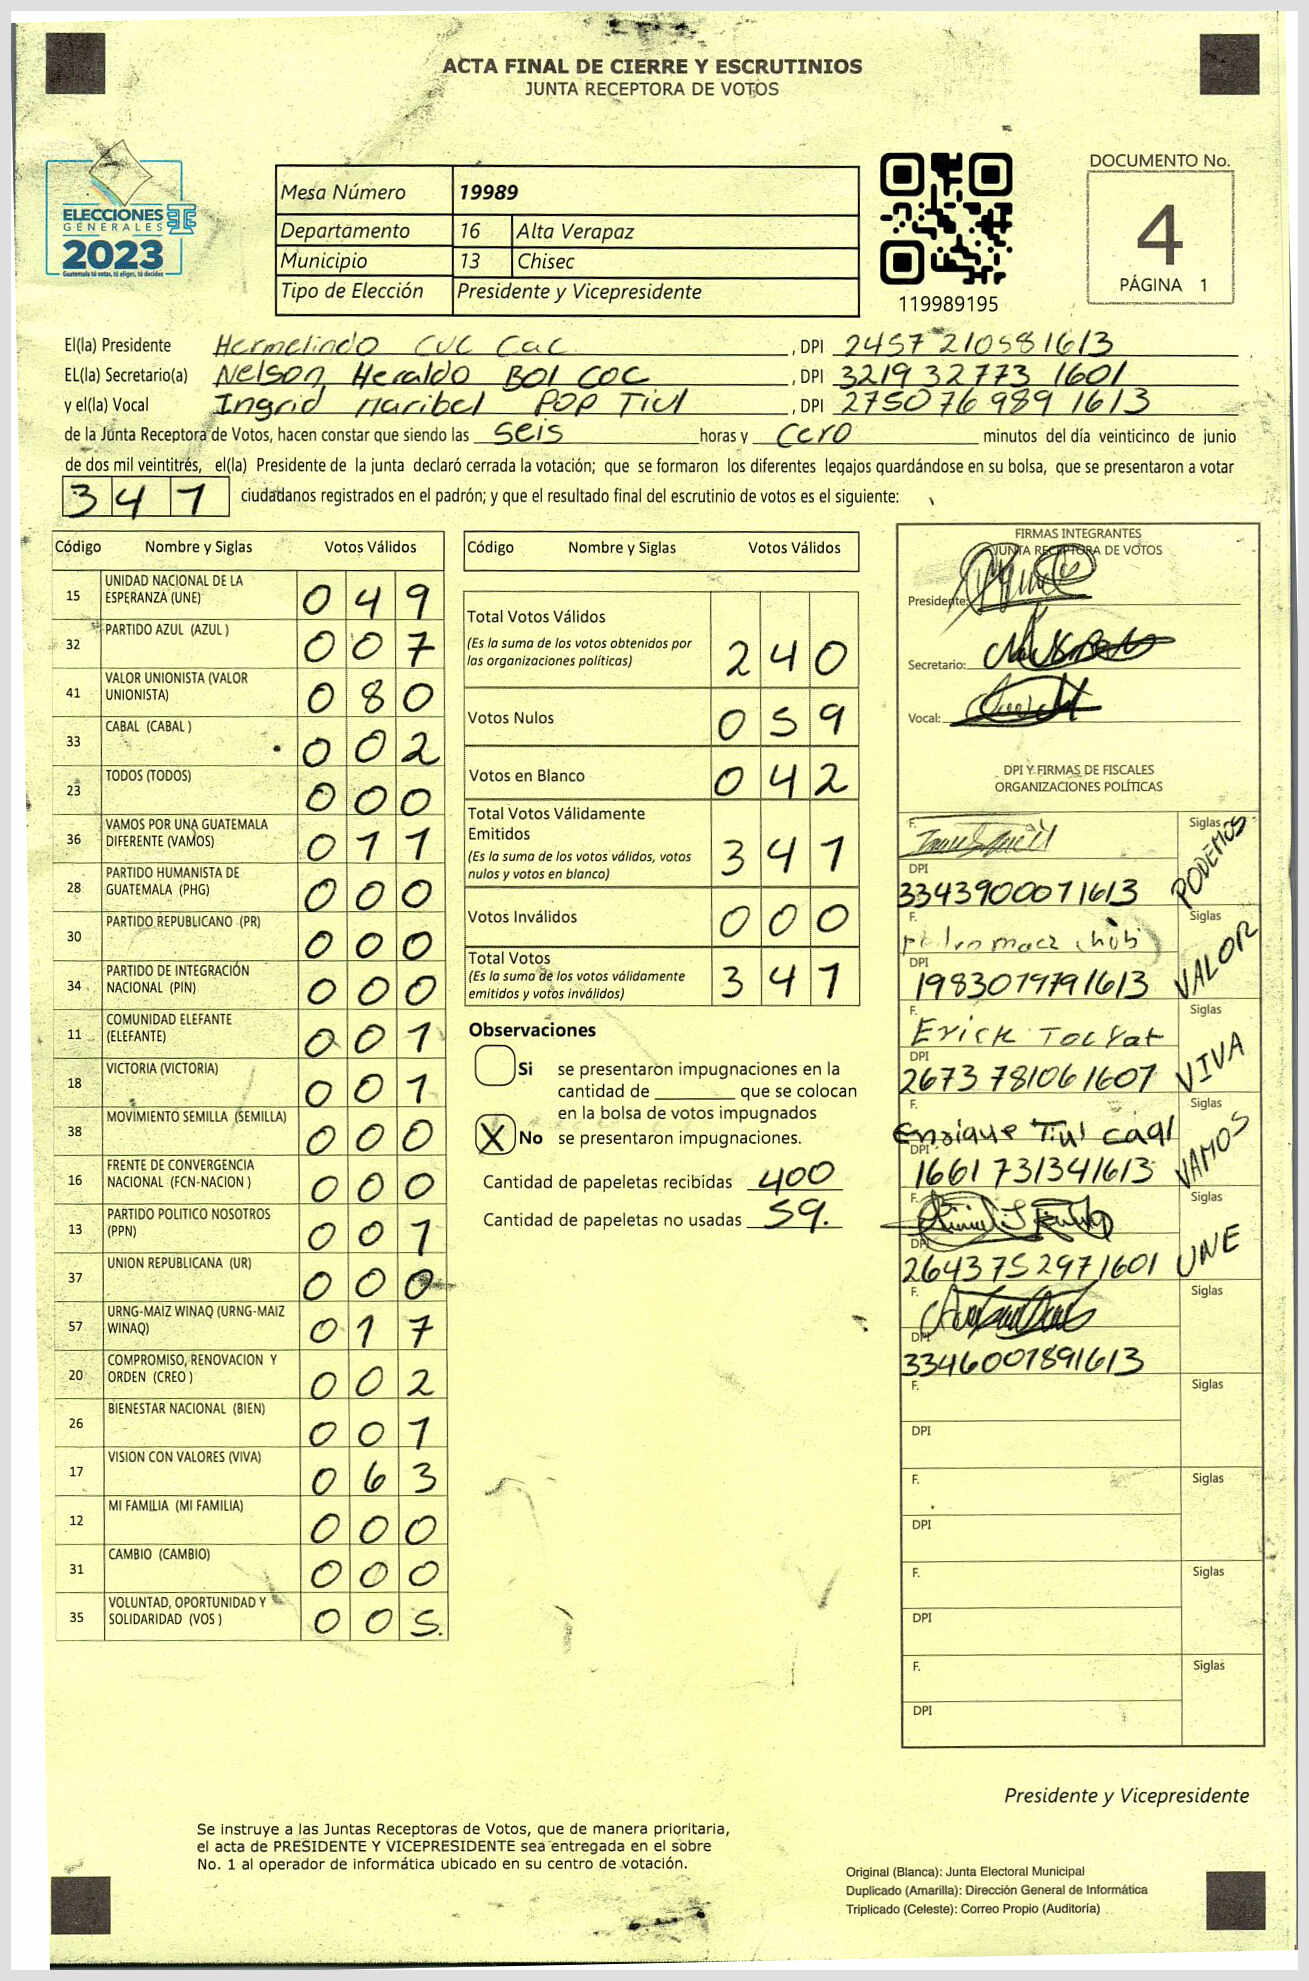 ACTA FINAL DE CIERRE Y ESCRUTINIOS
JUNTA RECEPTORA DE VOTOS
ELECCIONES
GENERALES
2023
Guatemala tú votas, tú eliges, tú decides
Mesa Número 19989
Departamento 16 Alta Verapaz
Municipio 13 Chisec
Tipo de Elección Presidente y Vicepresidente
119989195
DOCUMENTO No.
4
PÁGINA 1
El(la) Presidente Hermelindo Cuc Cac, DPI 2457 21058 1613
EL(la) Secretario(a) Nelson Heraldo BOI COC, DPI 3219 32773 1601
y el(la) Vocal Ingrid Maribel POP Tiul, DPI 2750 76 989 1613
de la Junta Receptora de Votos, hacen constar que siendo las seis horas y cero minutos del día veinticinco de junio
de dos mil veintitrés, el(la) Presidente de la junta declaró cerrada la votación; que se formaron los diferentes legajos guardándose en su bolsa, que se presentaron a votar
341 ciudadanos registrados en el padrón; y que el resultado final del escrutinio de votos es el siguiente:
Código Nombre y Siglas Votos Válidos
15 UNIDAD NACIONAL DE LA ESPERANZA (UNE) 0 4 9
32 PARTIDO AZUL (AZUL ) 0 0 7
41 VALOR UNIONISTA (VALOR UNIONISTA) 0 8 0
33 CABAL (CABAL ) 0 0 2
23 TODOS (TODOS) 0 0 0
36 VAMOS POR UNA GUATEMALA DIFERENTE (VAMOS) 0 1 1
28 PARTIDO HUMANISTA DE GUATEMALA (PHG) 0 0 0
30 PARTIDO REPUBLICANO (PR) 0 0 0
34 PARTIDO DE INTEGRACIÓN NACIONAL (PIN) 0 0 0
11 COMUNIDAD ELEFANTE (ELEFANTE) 0 0 1
18 VICTORIA (VICTORIA) 0 0 1
38 MOVIMIENTO SEMILLA (SEMILLA) 0 0 0
16 FRENTE DE CONVERGENCIA NACIONAL (FCN-NACION ) 0 0 0
13 PARTIDO POLITICO NOSOTROS (PPN) 0 0 1
37 UNION REPUBLICANA (UR) 0 0 0
57 URNG-MAIZ WINAQ (URNG-MAIZ WINAQ) 0 1 7
20 COMPROMISO, RENOVACION Y ORDEN (CREO ) 0 0 2
26 BIENESTAR NACIONAL (BIEN) 0 0 1
17 VISION CON VALORES (VIVA) 0 6 3
12 MI FAMILIA (MI FAMILIA) 0 0 0
31 CAMBIO (CAMBIO) 0 0 0
35 VOLUNTAD, OPORTUNIDAD Y SOLIDARIDAD (VOS ) 0 0 5.
Código Nombre y Siglas Votos Válidos
Total Votos Válidos 2 4 0
(Es la suma de los votos obtenidos por
las organizaciones políticas)
Votos Nulos 0 5 9
Votos en Blanco 0 4 2
Total Votos Válidamente
Emitidos 3 4 1
(Es la suma de los votos válidos, votos
nulos y votos en blanco)
Votos Inválidos 0 0 0
Total Votos 3 4 1
(Es la suma de los votos válidamente
emitidos y votos inválidos)
Observaciones
Si se presentaron impugnaciones en la
cantidad de ________ que se colocan
en la bolsa de votos impugnados
X No se presentaron impugnaciones.
Cantidad de papeletas recibidas 400
Cantidad de papeletas no usadas 59.
FIRMAS INTEGRANTES
JUNTA RECEPTORA DE VOTOS
Presidente:
Secretario:
Vocal:
DPI Y FIRMAS DE FISCALES
ORGANIZACIONES POLÍTICAS
F. Siglas PODEMOS
DPI 3343900071613
F. Siglas VALOR
DPI 1983079791613
F. Erick Siglas VIVA
DPI 2673 781061607
F. Enrique Tiul caal Siglas VAMOS
DPI 1661 731341613
F. Siglas UNE
DPI 2643 75 297 1601
F. Siglas
DPI 3346001891613
F. Siglas
DPI
F. Siglas
DPI
F. Siglas
DPI
F. Siglas
DPI
Presidente y Vicepresidente
Se instruye a las Juntas Receptoras de Votos, que de manera prioritaria,
el acta de PRESIDENTE Y VICEPRESIDENTE sea entregada en el sobre
No. 1 al operador de informática ubicado en su centro de votación.
Original (Blanca): Junta Electoral Municipal
Duplicado (Amarilla): Dirección General de Informática
Triplicado (Celeste): Correo Propio (Auditoría)